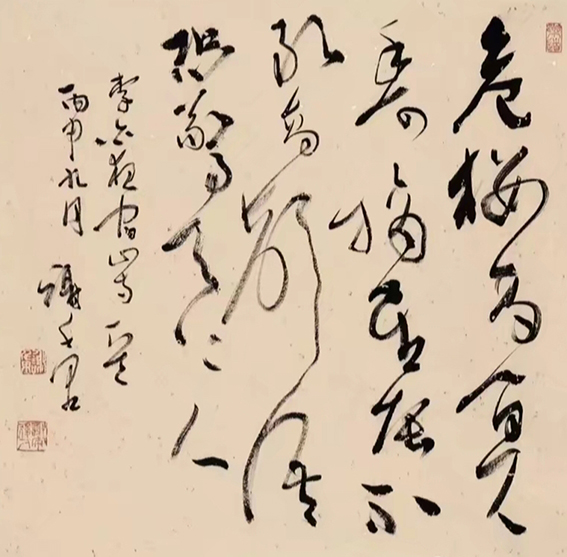 危樓高百尺
手可摘星辰不
敢高聲語
恐驚天上人
李白夜宿山寺
丙申九月